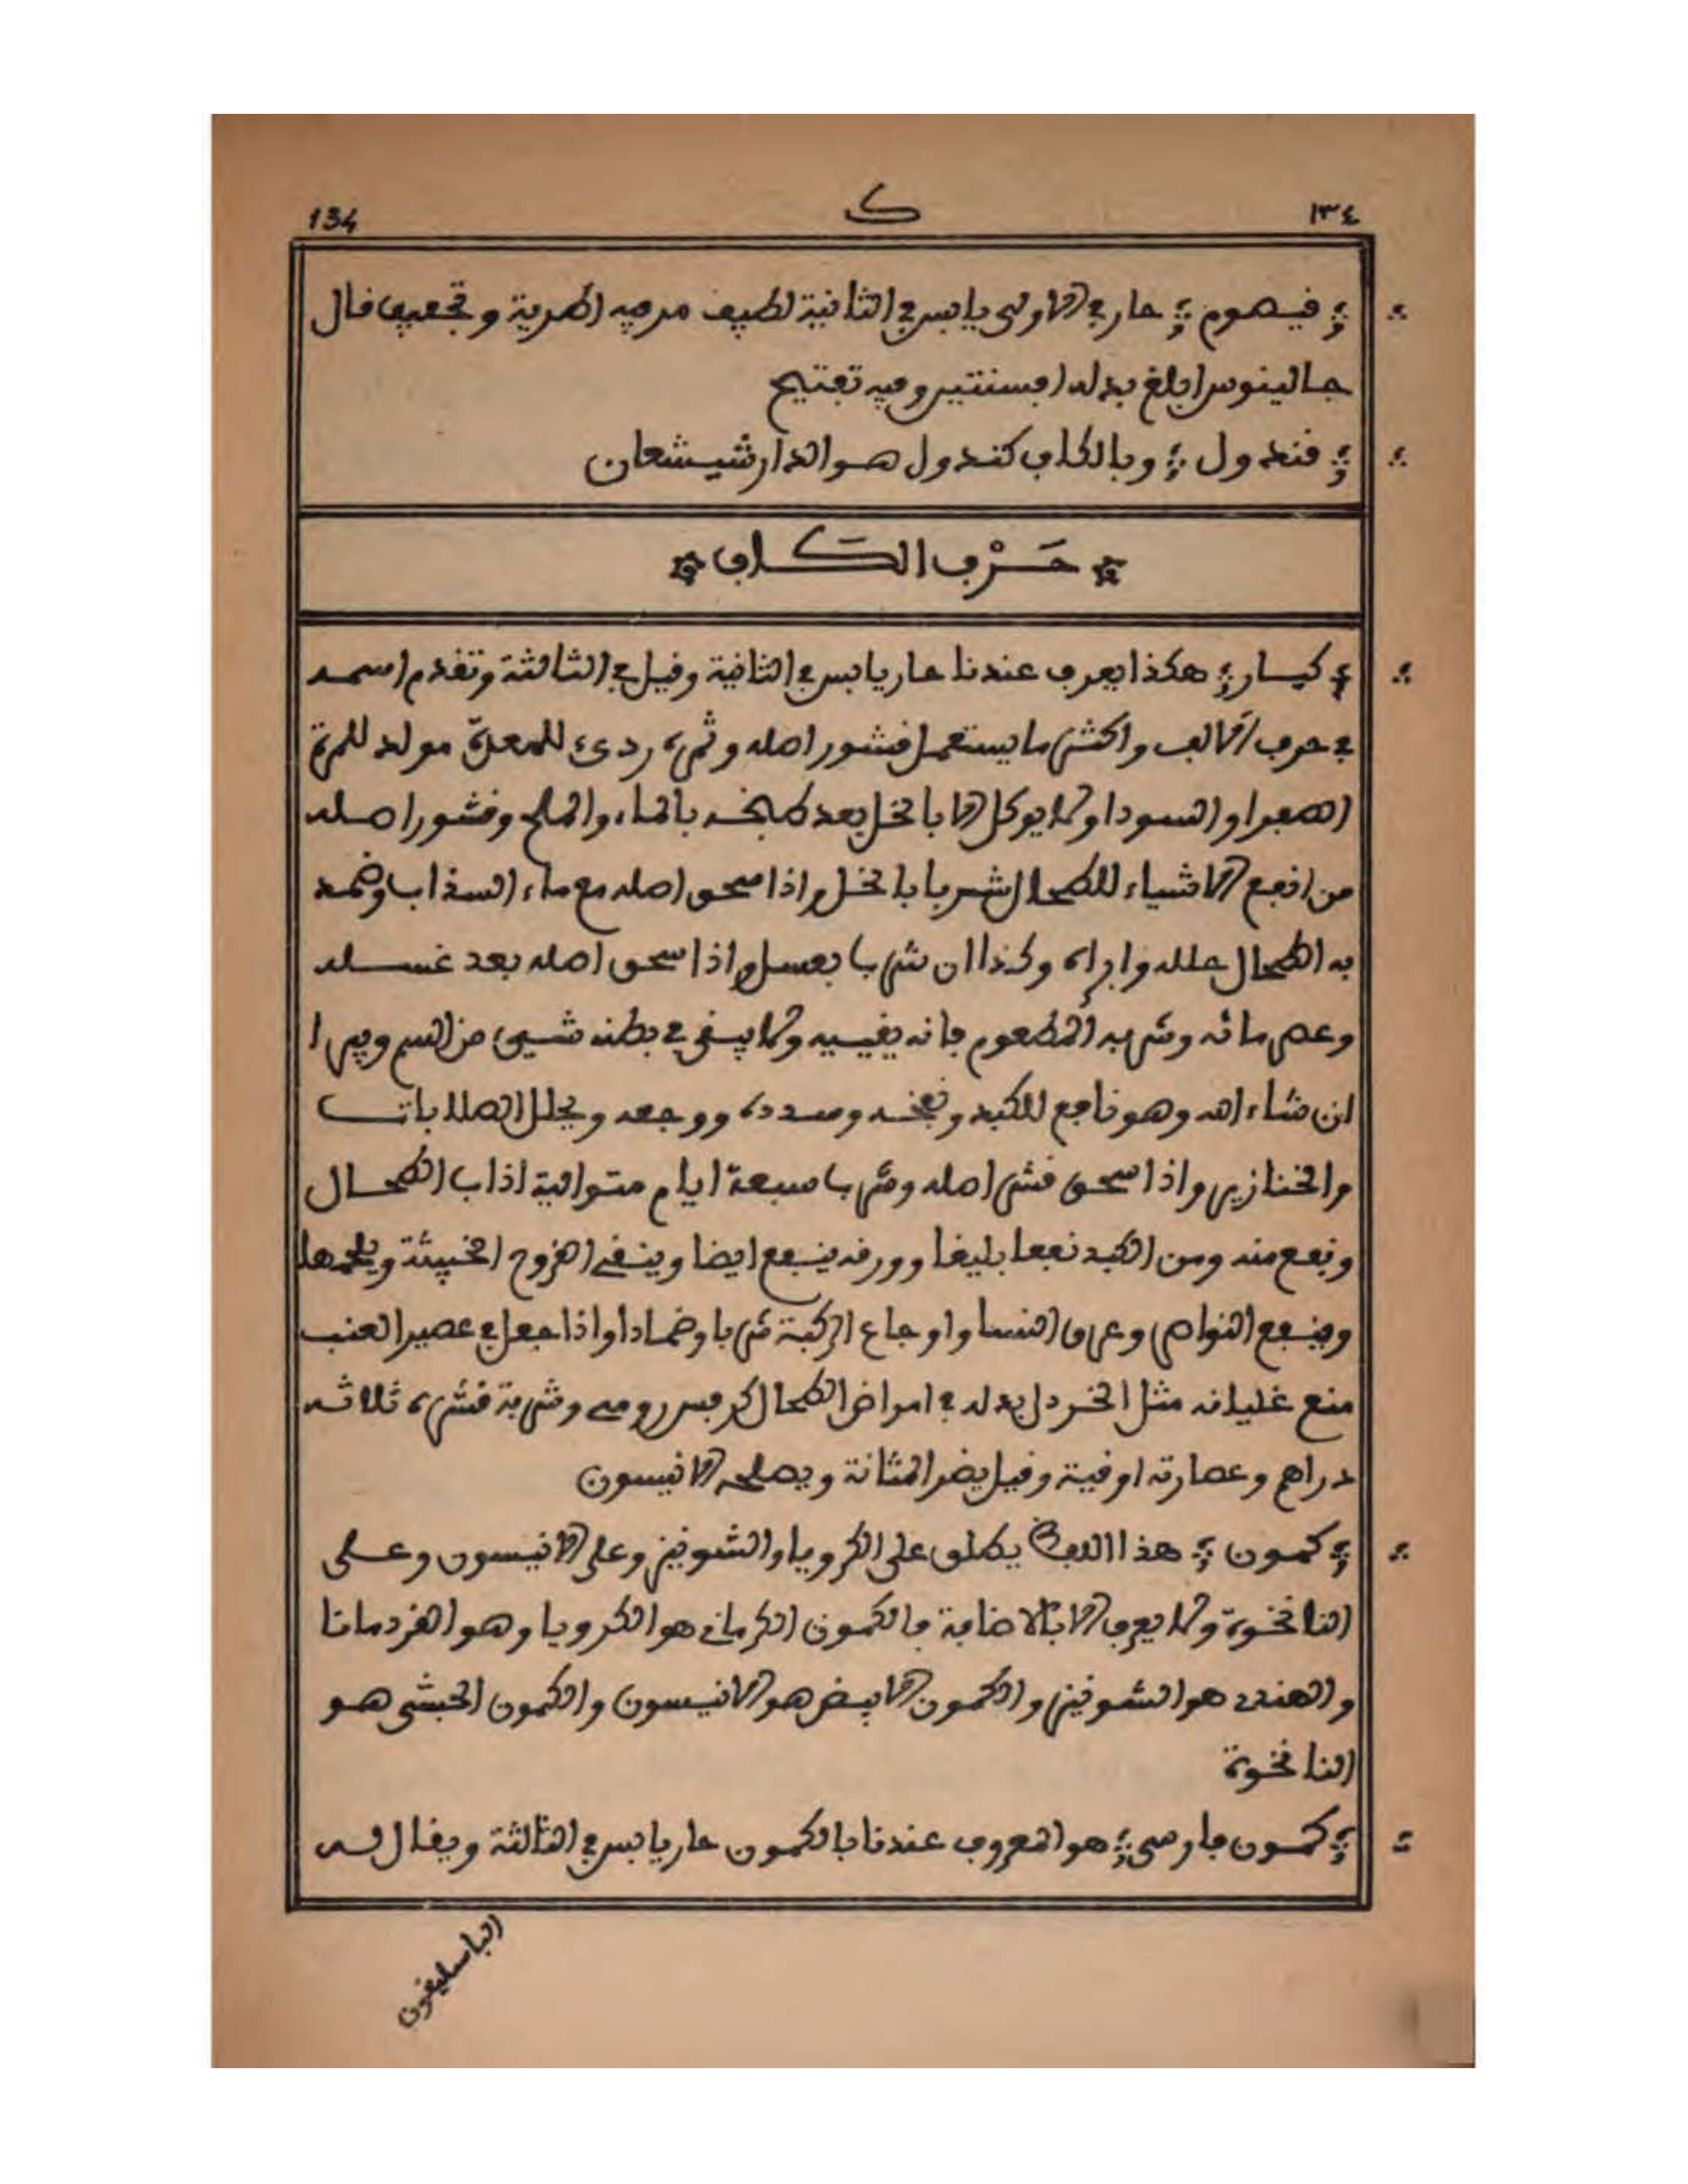 134 ك ١٣٤
قيهوم حار في الاولى يابس في الثانية لطيف مرفيه اطرية وتجفيف قال
جالينوس ابلغ بدله افسنتين وفيه تفتيح
قندول وبالكاف كندول هو الدارشيشعان
حَرْف الكَاف
كبار هكذا يعرف عندنا حار يابس في الثانية وقيل في الثالثة وتقدم اسمه
في حرف الالف واكثر ما يستعمل قشور اصله وثمره ردىء للمعدة مولد للمرة
الصفرا والسودا ولا يوكل الا بالخل بعد طبخه بالماء والملح وقشور اصله
من انفع الاشياء للطحال شربا بالخل واذا سحق اصله مع ماء السذاب وضمد
به الطحال حلله وابراه وكذا ان شربا بعسل واذا سحق اصله بعد غسله
وعصر مائه وشربه المطعوم فانه يقييه ولا يبقى في بطنه شىء من السم ويبرا
ان شاء الله وهو نافع للكبد ونفخه وسدده ووجعه ويحلل الصلابات
والخنازير واذا سحق قشر اصله وشربا سبعة ايام متوالية اذاب الطحال
ونفع منه ومن الكبد نفعا بليغا وورقه ينفع ايضا وينقي القروح الخبيثة ويلحمها
وينفع النواصر وعرق النسا واوجاع الركبة شربا وضمادا واذا جعل في عصير العنب
منع غليانه مثل الخردل بدله في امراض الطحال كرفس رومي وشربة قشره ثلاثه
دراهم وعصارته اوقية وقيل يضر المثانة ويصلحه الانيسون
كمون هذا اللفظ يطلق على الكرويا والشونيز وعلى الانيسون وعلى
النانخوة ولا يعرف الا بالاضافة فالكمون الكرماني هو الكرويا وهو القردمانا
والهندي هو الشونيز والكمون الابيض هو الانيسون والكمون الحبشي هو
النانخوة
كمون فارسى هو المعروف عندنا بالكمون حار يابس في الثالثة ويقال له
الباسليقون